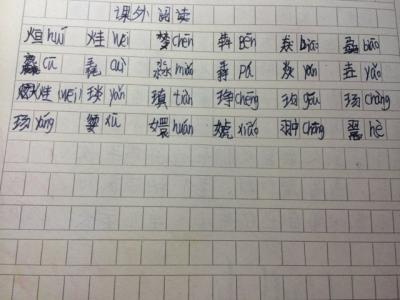 课外阅读
烜 huī 烓 wei chēn 犇 Bēn 猋 biāo biāo
麤 cū 毳 cuì 淼 miǎo pā 焱 yàn 垚 yáo
烓(wei) 琰 yǎn 瑱 tiàn 琤 chēng 玽 gǒu 玚 chàng
玚 yáng 媭 xū 嬛 huán 婋 xiāo 翀 chōng 翯 hè